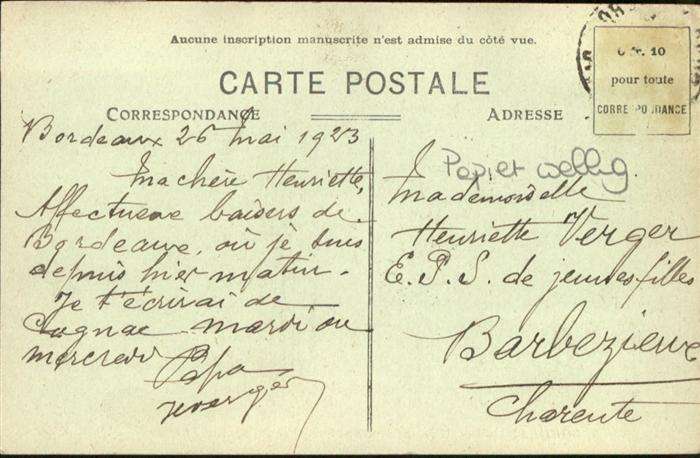 Aucune inscription manuscrite n'est admise du côté vue.
CARTE POSTALE
CORRESPONDANCE
ADRESSE
0 fr. 10
pour toute
CORRESPONDANCE
Bordeaux 26 Mai 1923
Ma chère Henriette,
Affectueux baisers de
Bordeaux, où je suis
depuis hier matin.
Je t'écrirai de
Cognac mardi ou
mercredi
Papa
Verger
Papier wellig
Mademoiselle
Henriette Verger
E. P. S. de jeunes filles
Barbezieux
Charente